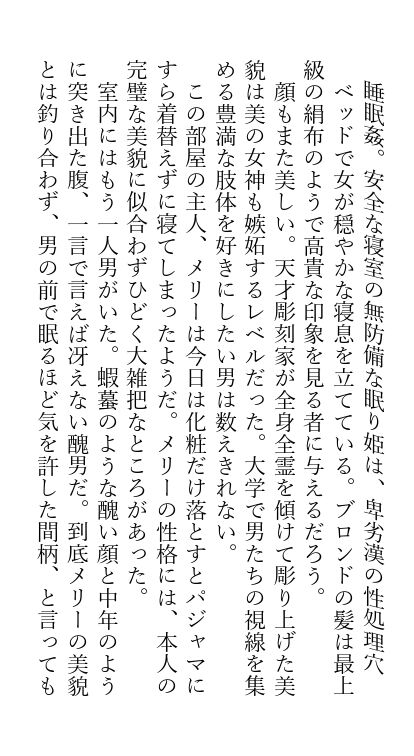 睡眠姦。安全な寝室の無防備な眠り姫は、卑劣漢の性処理穴
ベッドで女が穏やかな寝息を立てている。ブロンドの髪は最上
級の絹布のようで高貴な印象を見る者に与えるだろう。
顔もまた美しい。天才彫刻家が全身全霊を傾けて彫り上げた美
貌は美の女神も嫉妬するレベルだった。大学で男たちの視線を集
める豊満な肢体を好きにしたい男は数えきれない。
この部屋の主人、メリーは今日は化粧だけ落とすとパジャマに
すら着替えずに寝てしまったようだ。メリーの性格には、本人の
完璧な美貌に似合わずひどく大雑把なところがあった。
室内にはもう一人男がいた。蝦蟇のような醜い顔と中年のよう
に突き出た腹、一言で言えば冴えない醜男だ。到底メリーの美貌
とは釣り合わず、男の前で眠るほど気を許した間柄、と言っても